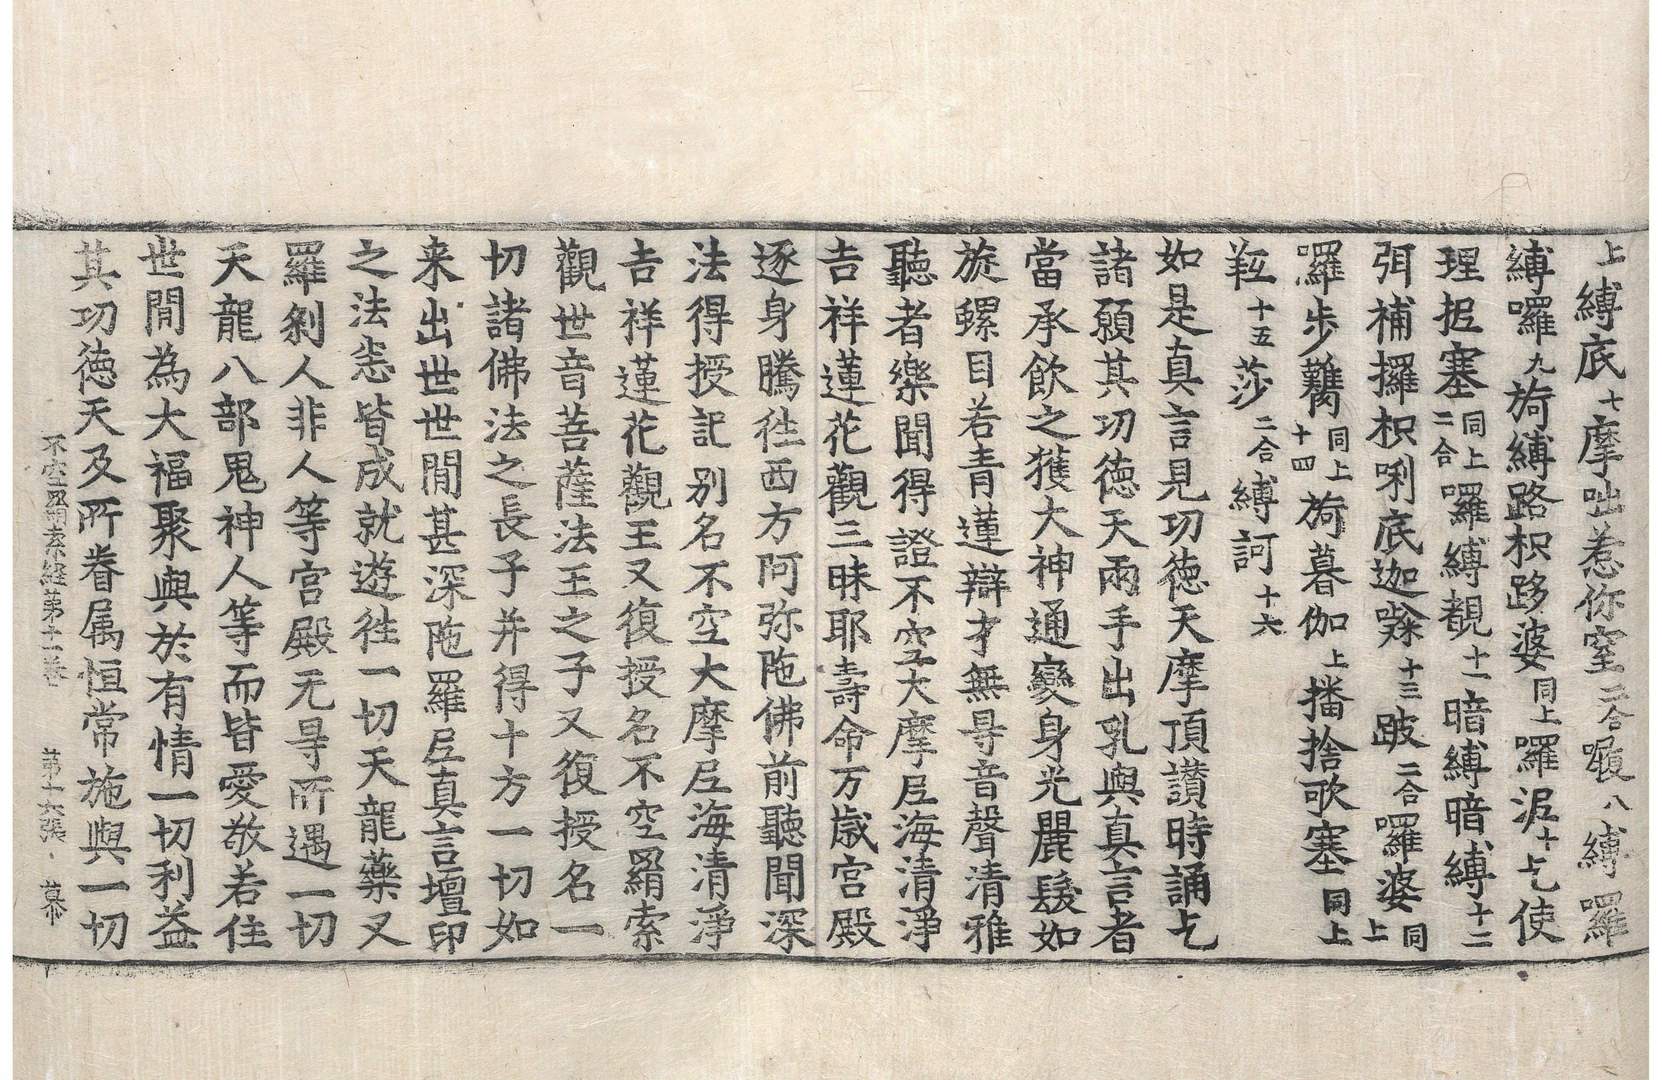 上縛底七摩咄惹你窒二合㘑八縛羅
縛囉九旖縛路枳䟂婆同上囉泥十乞使
理抳塞同上二合囉縛覩十一暗縛暗縛十二
弭補攞枳唎底迦㘑十三跛二合囉婆同上
囉步鞲同上十四旖暮伽上播捨歌塞同上
䩭十五莎二合縛訶十六
如是真言見功徳天摩頂讃時誦乞
諸願其功徳天兩手出乳與真言者
當承飲之獲大神通變身光麗髮如
旋螺目若青蓮辯才無㝵音聲清雅
聽者樂聞得證不空大摩尼海清淨
吉祥蓮花觀三昧耶壽命万歳宮殿
逐身騰徃西方阿弥陁佛前聽聞深
法得授記别名不空大摩尼海清淨
吉祥蓮花觀王又復授名不空羂索
觀世音菩薩法王之子又復授名一
切諸佛法之長子并得十方一切如
来出世世閒甚深陁羅尼真言壇印
之法恚皆成就遊徃一切天龍藥叉
羅刹人非人等宮殿无㝵所遇一切
天龍八部鬼神人等而皆愛敬若住
世閒為大福聚與於有情一切利益
其功徳天及所眷属恒常施與一切
不空羂索經第十一卷 第十六張 慕